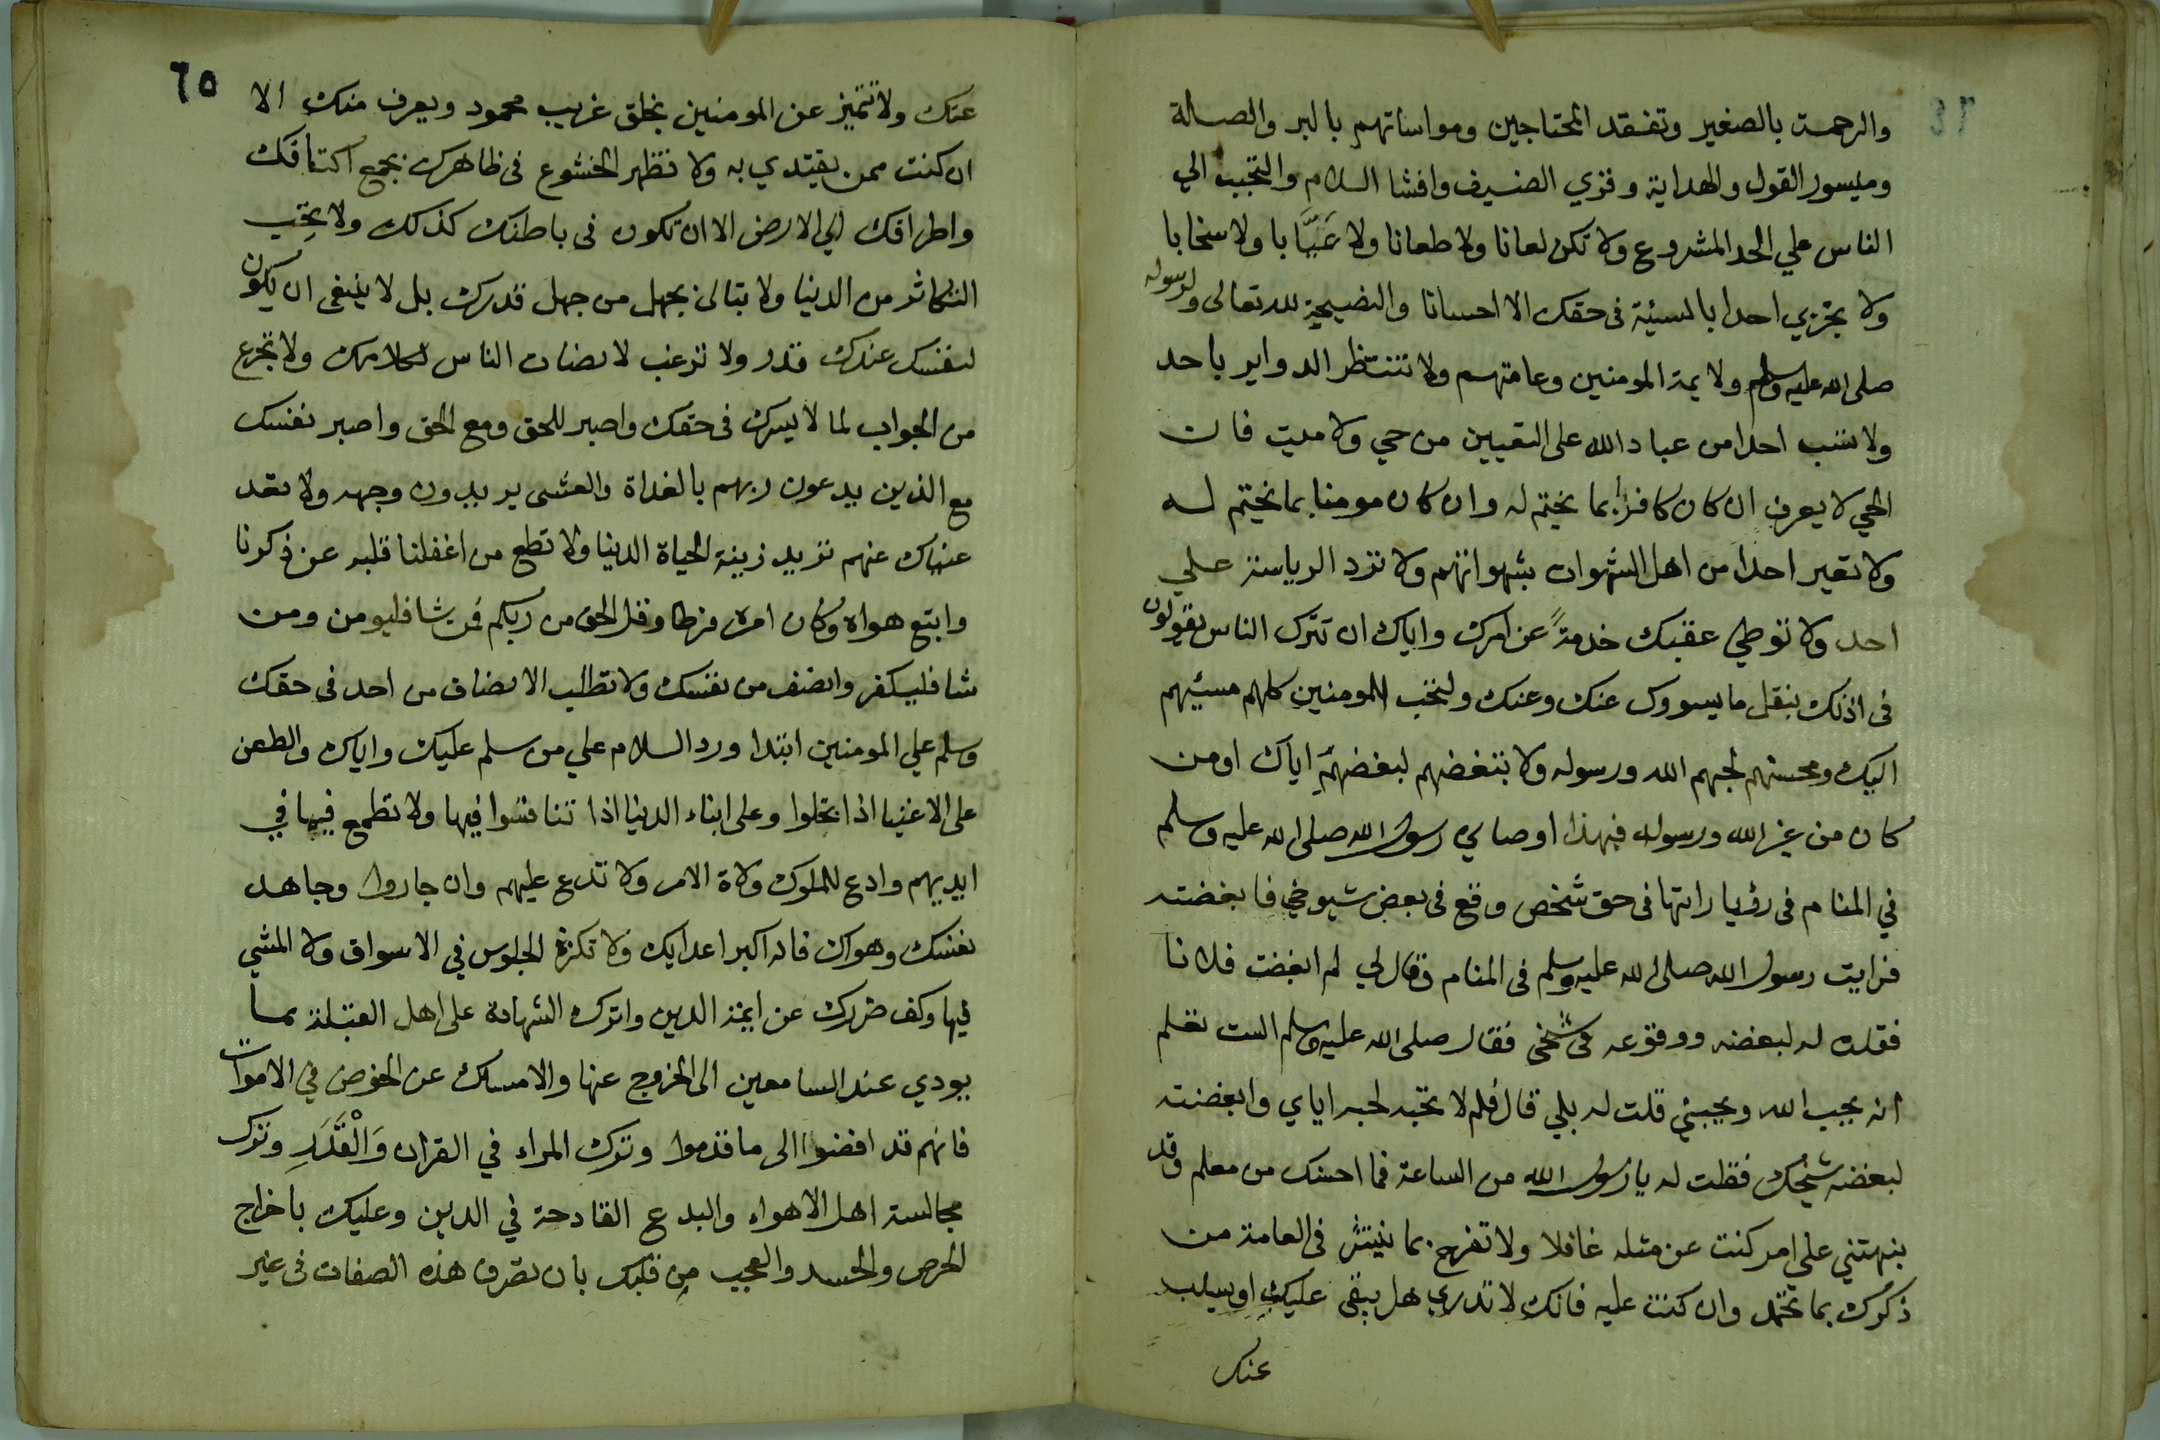 والرحمة بالصغير وتفقد المحتاجين ومواساتهم بالبر والصلة
وميسور القول والهداية وقري الضيف وافشا السلام والتحبب الي
الناس علي الحد المشروع ولا تكن لعانا ولا طعانا ولا عَيَّابا ولا سخابا
ولا تجزي احدا بالسيئة فى حقك الا احسانا والنصيحة لله تعالى ولرسوله
صلى الله عليه وسلم ولايمة المومنين وعامتهم ولا تنتظر الدواير باحد
ولا تسب احدا من عباد الله على التعيين من حي ولا ميت فان
الحي لا يعرف ان كان كافرا بما يختم له وان كان مومنا بما يختم له
ولا تعير احدا من اهل الشهوات بشهواتهم ولا ترد الرياسة علي
احد ولا توطي عقبك خدمةً عن امرك واياك ان تترك الناس يقولون
فى اذنك بنقل ما يسووك عنك وعنك ولتحب المومنين كلهم مسئيهم
اليك ومحسنهم لحبهم الله ورسوله ولا تبغضهم لبغضهم اياك او من
كان من غير الله ورسوله فبهذا اوصاني رسول الله صلى الله عليه وسلم
في المنام فى رؤيا رايتها فى حق شخص وقع فى بعض شيوخي فابغضته
فرايت رسول الله صلى الله عليه وسلم فى المنام فقال لي لم ابغضت فلانا
فقلت له لبغضه ووقوعه فى شخى فقال صلى الله عليه وسلم الست تعلم
انه يحب الله ويحبني قلت له بلي قال فلم لا تحبه لحبه اياي وابغضته
لبغضه شيخك فقلت له يا رسول الله من الساعة فما احسنك من معلم وقد
نبهتني علي امر كنت عن مثله غافلا ولا تفرح بما ينتشر فى العامة من
ذكرك بما يحمد وان كنت عليه فانك لا تدري هل يبقى عليك او يسلب
عنك
٦٥
عنك ولا تتميز عن المومنين بخلق غريب محمود ويعرف منك الا
ان كنت ممن يقتدي به ولا تظهر الخشوع فى ظاهرك بجمع اكتافك
واطرافك الي الارض الا ان تكون فى باطنك كذلك ولا تحب
التكاثر من الدنيا ولا تبالى بجهل من جهل قدرك بل لا ينبغى ان يكون
لنفسك عندك قدر ولا ترغب لانصات الناس لكلامك ولا تجزع
من الجواب لما لا يسرك فى حقك واصبر للحق ومع الحق واصبر نفسك
مع الذين يدعون ربهم بالغداة والعشى يريدون وجهه ولا تعد
عيناك عنهم تريد زينة الحياة الدنيا ولا تطع من اغفلنا قلبه عن ذكرنا
واتبع هواه وكان امره فرطا وقل الحق من ربكم فمن شا فليومن ومن
شا فليكفر وانصف من نفسك ولا تطلب الانصاف من احد فى حقك
وسلم علي المومنين ابتدا ورد السلام علي من سلم عليك واياك والطعن
على الاغنيا اذا بخلوا وعلى ابناء الدنيا اذا تنافسوا فيها ولا تطمع فيما في
ايديهم وادع للملوك ولاة الامر ولا تدع عليهم وان جاروا وجاهد
نفسك وهواك فانه اكبر اعدايك ولا تكثر الجلوس في الاسواق ولا المشي
فيها وكف ضررك عن ايمة الدين واترك الشهادة على اهل القبلة بما
يودي عند السامعين الى الخروج عنها والامساك عن الخوض في الاموات
فانهم قد افضوا الى ما قدموا وترك المراء في القران وَالْقَدَرِ وترك
مجالسة اهل الاهواء والبدع القادحة في الدين وعليك باخراج
الحرص والحسد والعجب من قلبك بان تصرف هذه الصفات فى غير